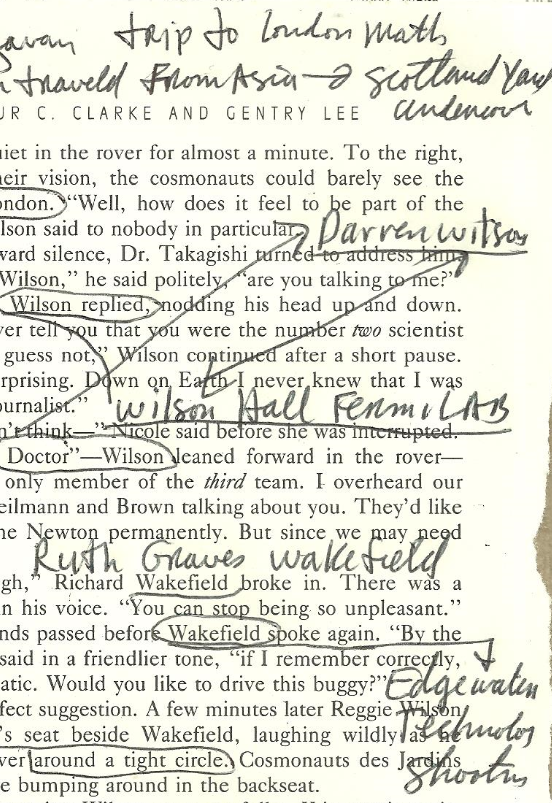 trip to London Math
traveld From Asia → Scotland Yard
undercover
UR C. CLARKE AND GENTRY LEE
uiet in the rover for almost a minute. To the right,
heir vision, the cosmonauts could barely see the
ondon. “Well, how does it feel to be part of the
lson said to nobody in particular.
Darren Wilson
ward silence, Dr. Takagishi turned to address him.
Wilson,” he said politely, “are you talking to me?”
Wilson replied, nodding his head up and down.
ver tell you that you were the number two scientist
guess not,” Wilson continued after a short pause.
rprising. Down on Earth I never knew that I was
ournalist.”
Wilson Hall FermiLAB
n’t think—” Nicole said before she was interrupted.
Doctor”—Wilson leaned forward in the rover—
only member of the third team. I overheard our
eilmann and Brown talking about you. They’d like
he Newton permanently. But since we may need
Ruth Graves Wakefield
gh,” Richard Wakefield broke in. There was a
in his voice. “You can stop being so unpleasant.”
nds passed before Wakefield spoke again. “By the
said in a friendlier tone, “if I remember correctly,
atic. Would you like to drive this buggy?”
Edgewater
fect suggestion. A few minutes later Reggie Wilson
Technolog
’s seat beside Wakefield, laughing wildly as he
ver around a tight circle. Cosmonauts des Jardins
Shooting
e bumping around in the backseat.